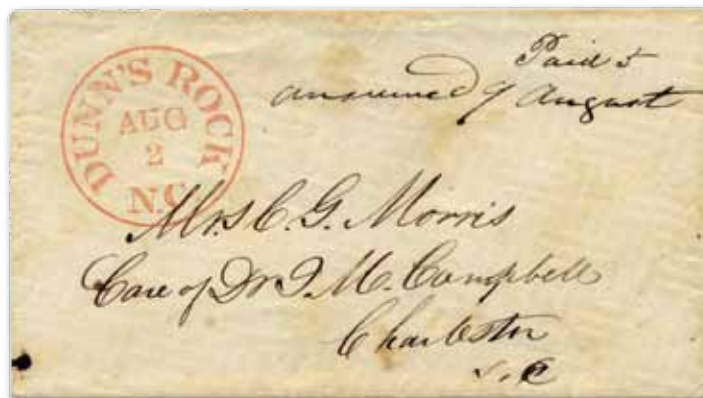 DUNN'S ROCK
AUG
2
N.C.
Paid 5
answered 9 August
Mrs C. G. Morris
Care of Dr I. M. Campbell
Charleston
S.C